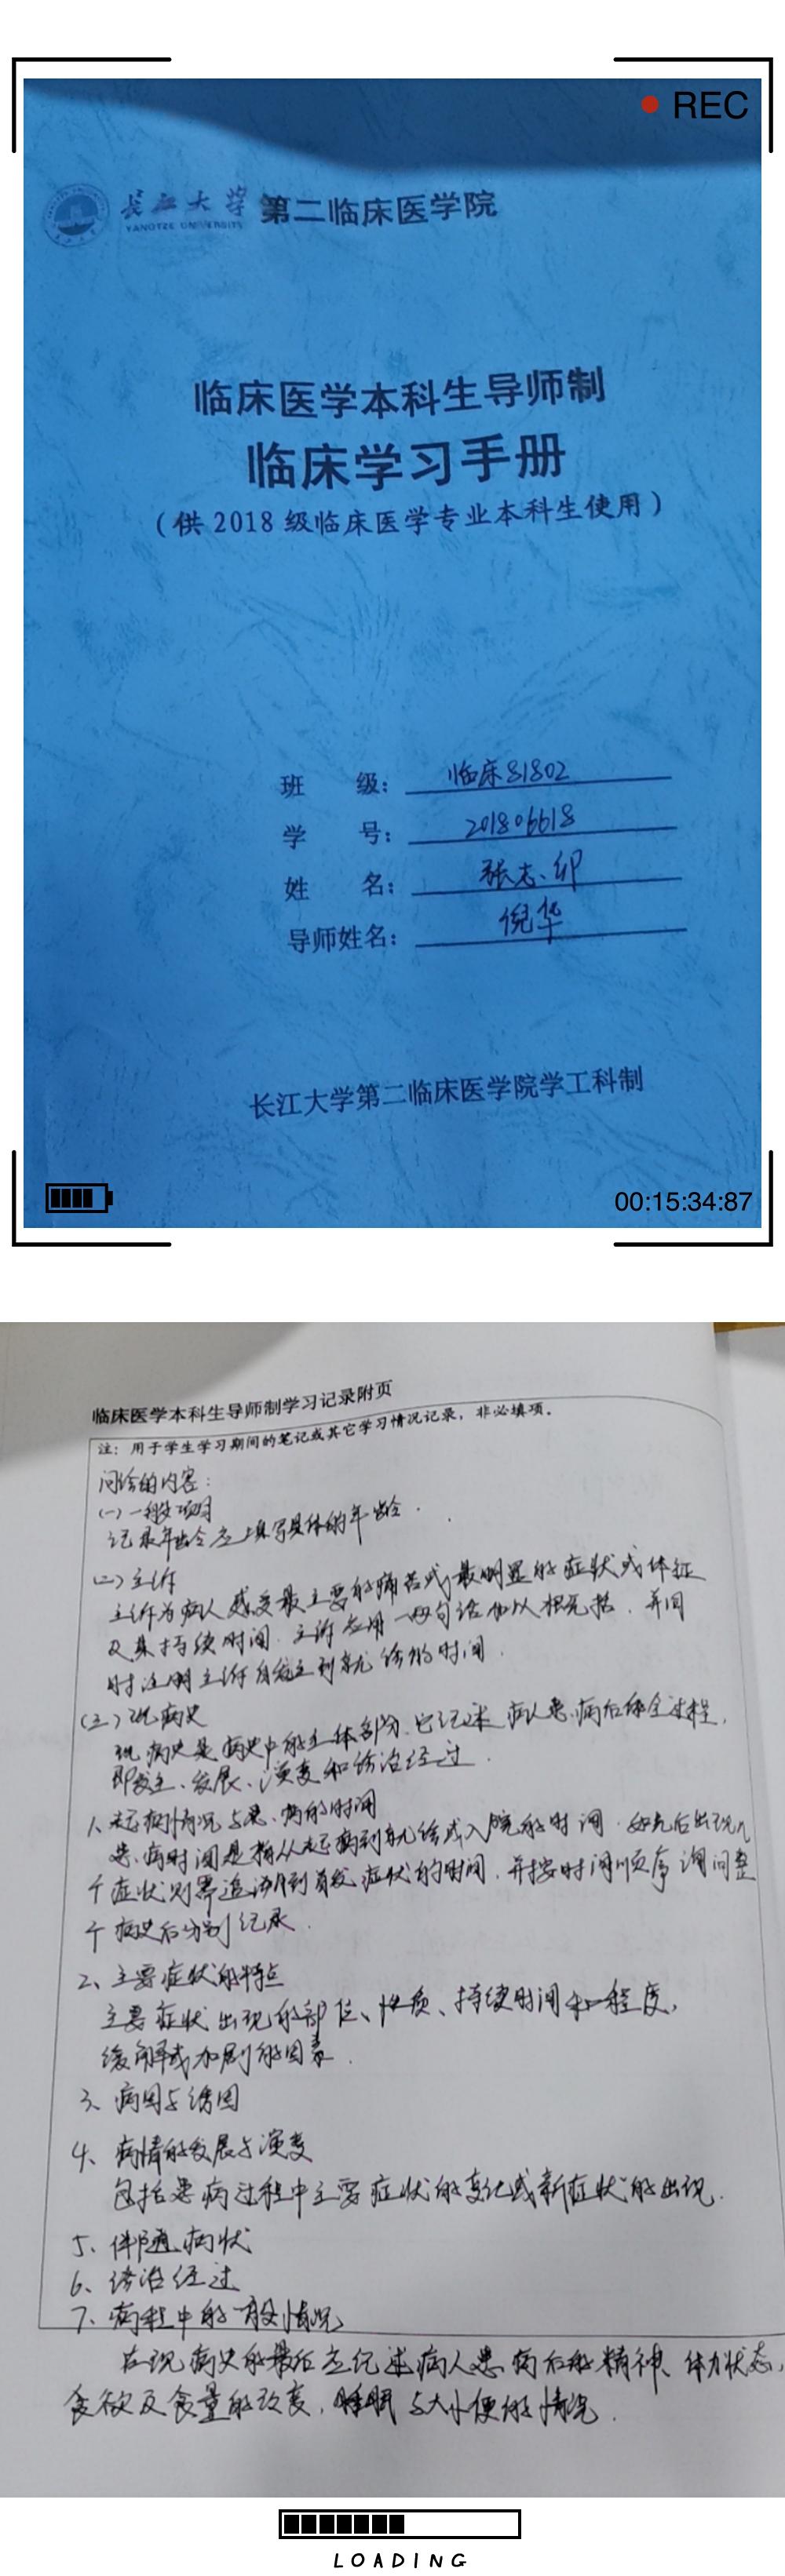 REC
长江大学 第二临床医学院
YANGTZE UNIVERSITY
临床医学本科生导师制
临床学习手册
（供 2018 级临床医学专业本科生使用）
班 级： 临床81802
学 号： 201806618
姓 名： 张志
导师姓名： 倪华
长江大学第二临床医学院学工科制
00:15:34:87
临床医学本科生导师制学习记录附页
注：用于学生学习期间的笔记或其它学习情况记录，非必填项。
问诊的内容：
(一) 一般项目
记录年龄应填写具体的年龄.
(二) 主诉
主诉为病人感受最主要的痛苦或最明显的症状或体征
及其持续时间. 主诉应用一两句话加以概括. 并同
时注明主诉自发生到就诊的时间.
(三) 现病史
现病史是病史中的主体部分. 它记述病人患病后的全过程,
即发生、发展、演变和诊治经过.
1、起病情况与患病的时间
患病时间是指从起病到就诊或入院的时间. 如先后出现几
个症状则需追溯到首发症状的时间. 并按时间顺序询问整
个病史后分别记录.
2、主要症状的特点
主要症状出现的部位、性质、持续时间和程度,
缓解或加剧的因素.
3、病因与诱因
4、病情的发展与演变
包括患病过程中主要症状的变化或新症状的出现.
5、伴随病状
6、诊治经过
7、病程中的一般情况
在现病史的最后应记述病人患病后的精神、体力状态,
食欲及食量的改变, 睡眠与大小便的情况.
LOADING